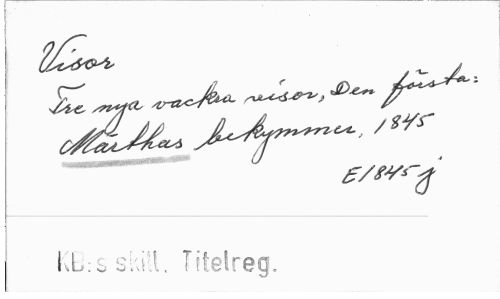 Visor
Tre nya vackra visor, Den första:
Märthas bekymmer, 1845
E1845j
KB:s skill. Titelreg.